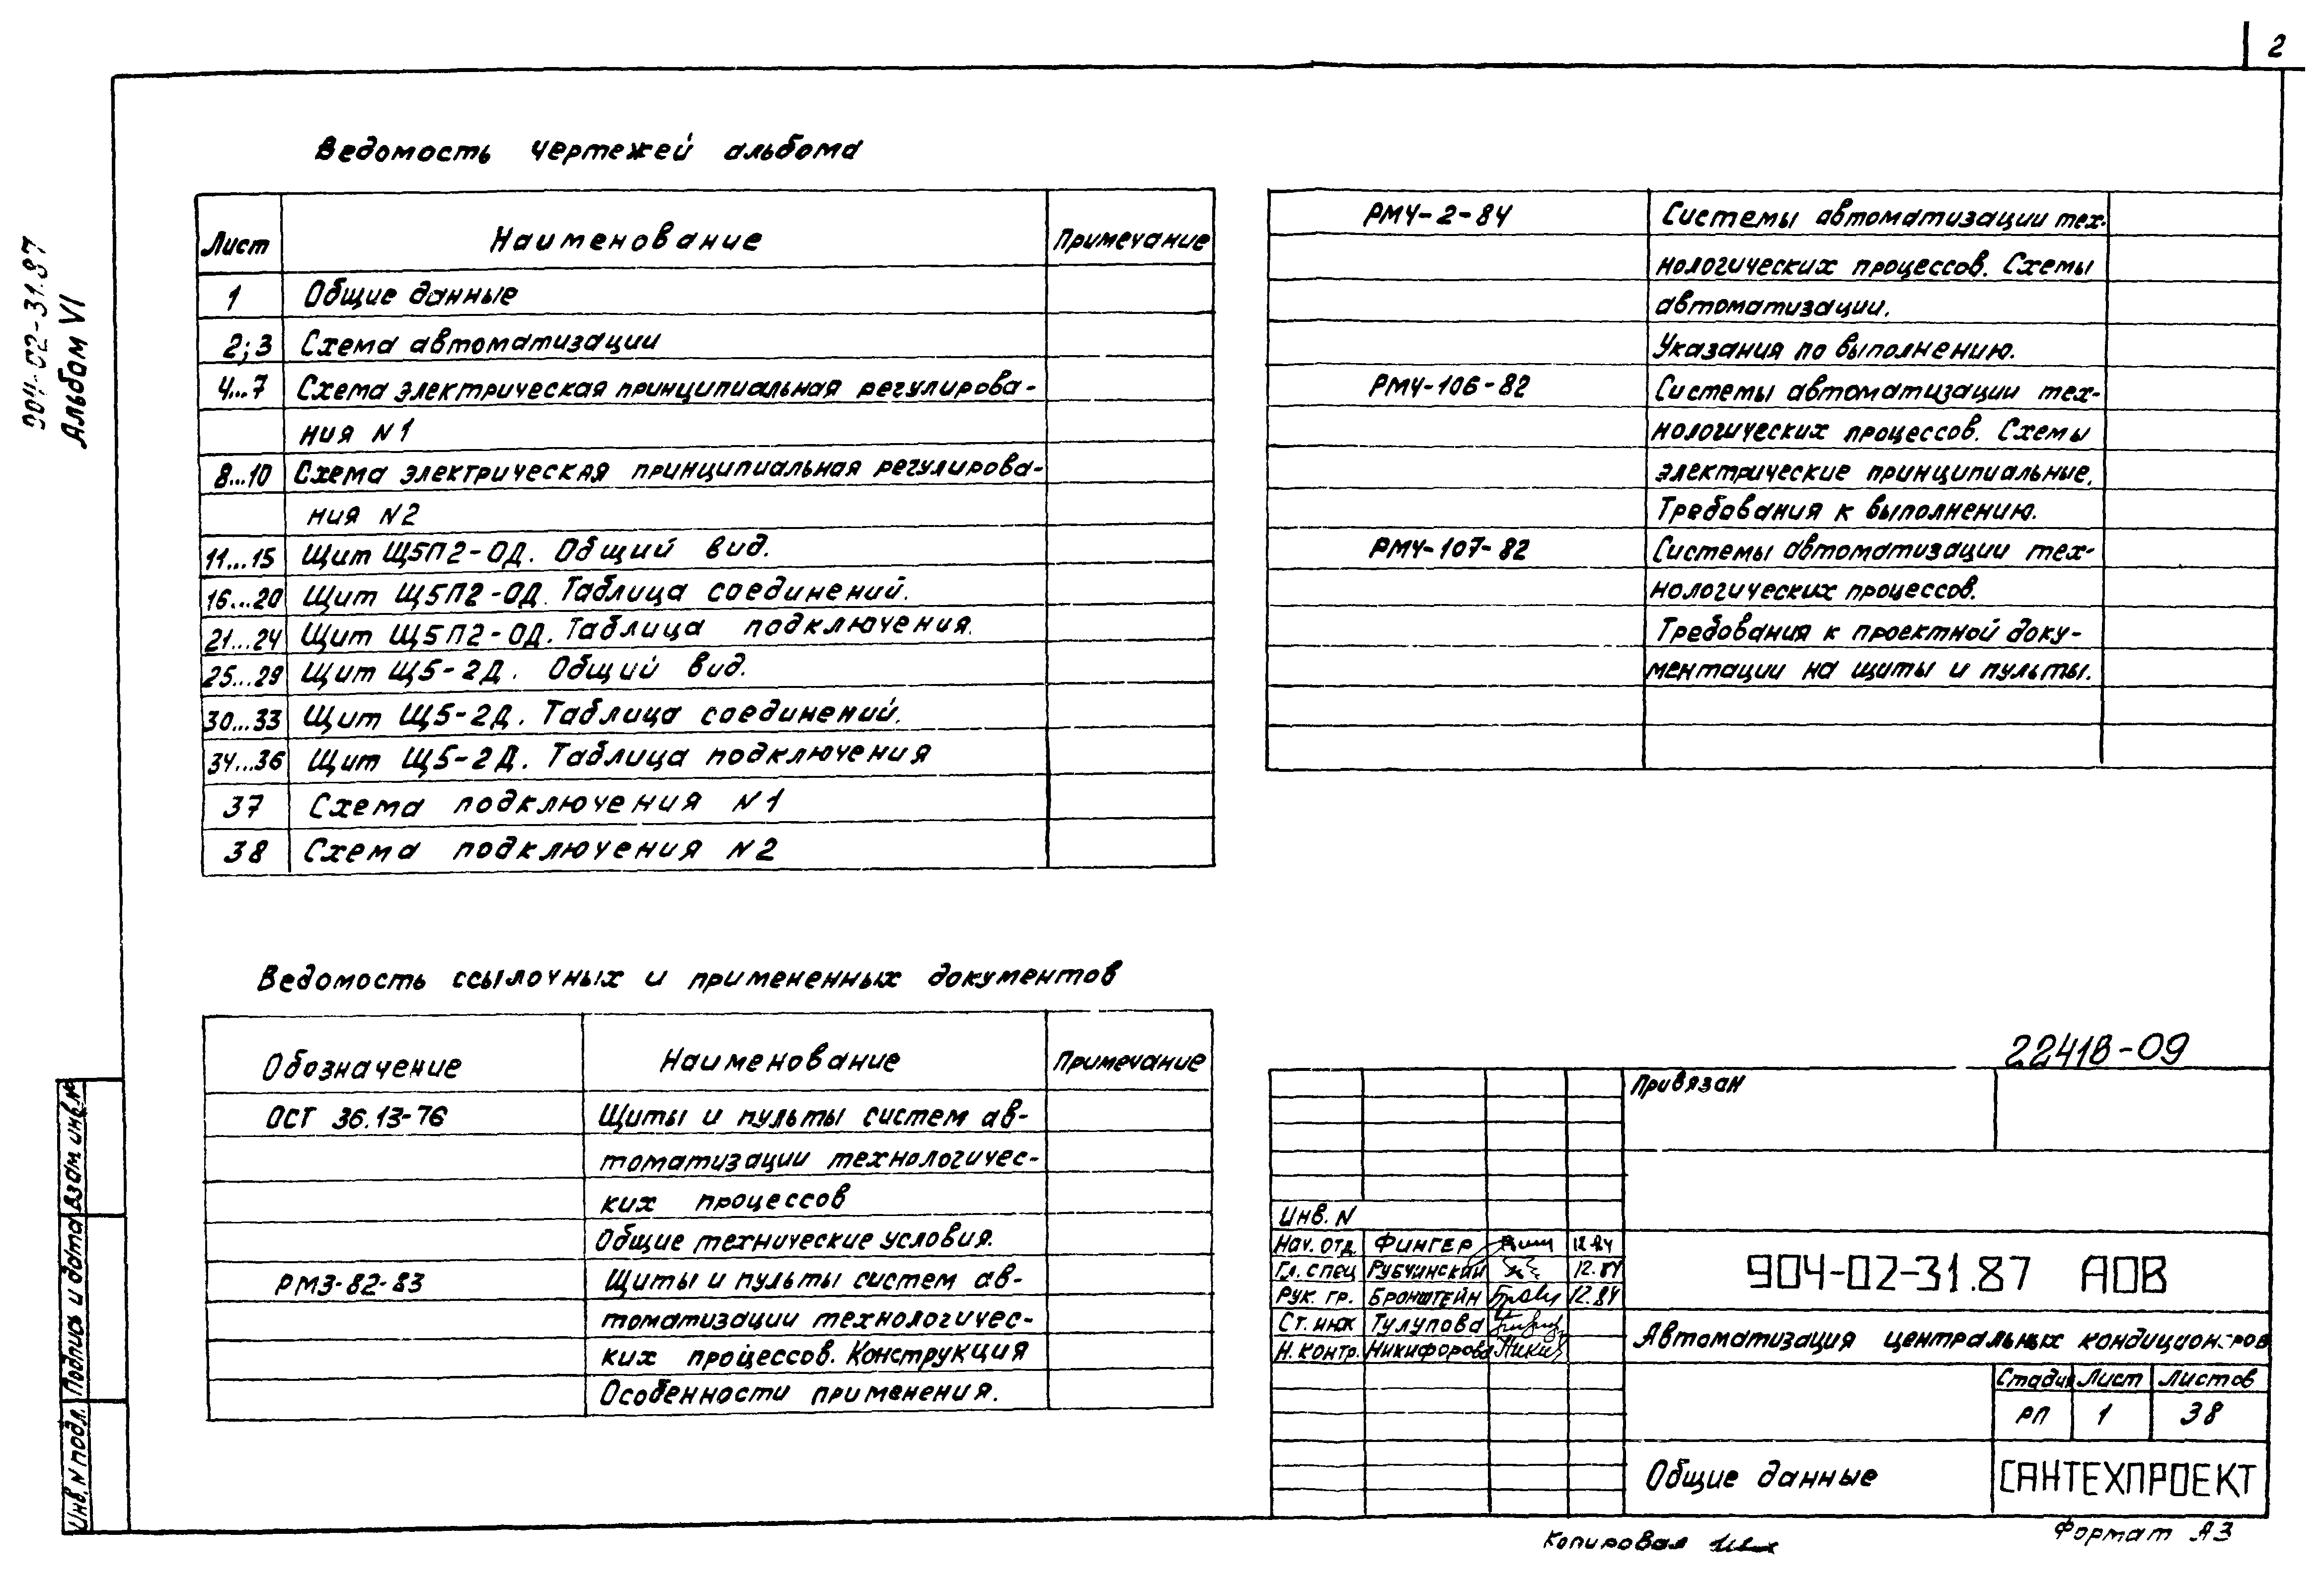 2
904-02-31.87
Альбом VI
Ведомость чертежей альбома
Лист Наименование Примечание
1 Общие данные
2;3 Схема автоматизации
4...7 Схема электрическая принципиальная регулирова-
ния N1
8...10 Схема электрическая принципиальная регулирова-
ния N2
11...15 Щит Щ5П2-ОД. Общий вид.
16...20 Щит Щ5П2-ОД. Таблица соединений.
21...24 Щит Щ5П2-ОД. Таблица подключения.
25...29 Щит Щ5-2Д. Общий вид.
30...33 Щит Щ5-2Д. Таблица соединений.
34...36 Щит Щ5-2Д. Таблица подключения
37 Схема подключения N1
38 Схема подключения N2
Ведомость ссылочных и примененных документов
Обозначение Наименование Примечание
ОСТ 36.13-76 Щиты и пульты систем ав-
томатизации технологичес-
ких процессов
Общие технические условия.
РМ3-82-83 Щиты и пульты систем ав-
томатизации технологичес-
ких процессов. Конструкция
Особенности применения.
РМ4-2-84 Системы автоматизации тех-
нологических процессов. Схемы
автоматизации.
Указания по выполнению.
РМ4-106-82 Системы автоматизации тех-
нологических процессов. Схемы
электрические принципиальные.
Требования к выполнению.
РМ4-107-82 Системы автоматизации тех-
нологических процессов.
Требования к проектной доку-
ментации на щиты и пульты.
22418-09
Привязан
Инв. N
Нач. отд. Фингер 12.84
Гл. спец Рубчинский 12.84
Рук. гр. Бронштейн 12.84
Ст. инж Тулупова
Н. контр. Никифорова
904-02-31.87 АОВ
Автоматизация центральных кондиционеров
Стадия Лист Листов
РП 1 38
Общие данные
САНТЕХПРОЕКТ
Инв. N подл. Подпись и дата Взам инв. N
Копировал
Формат А3